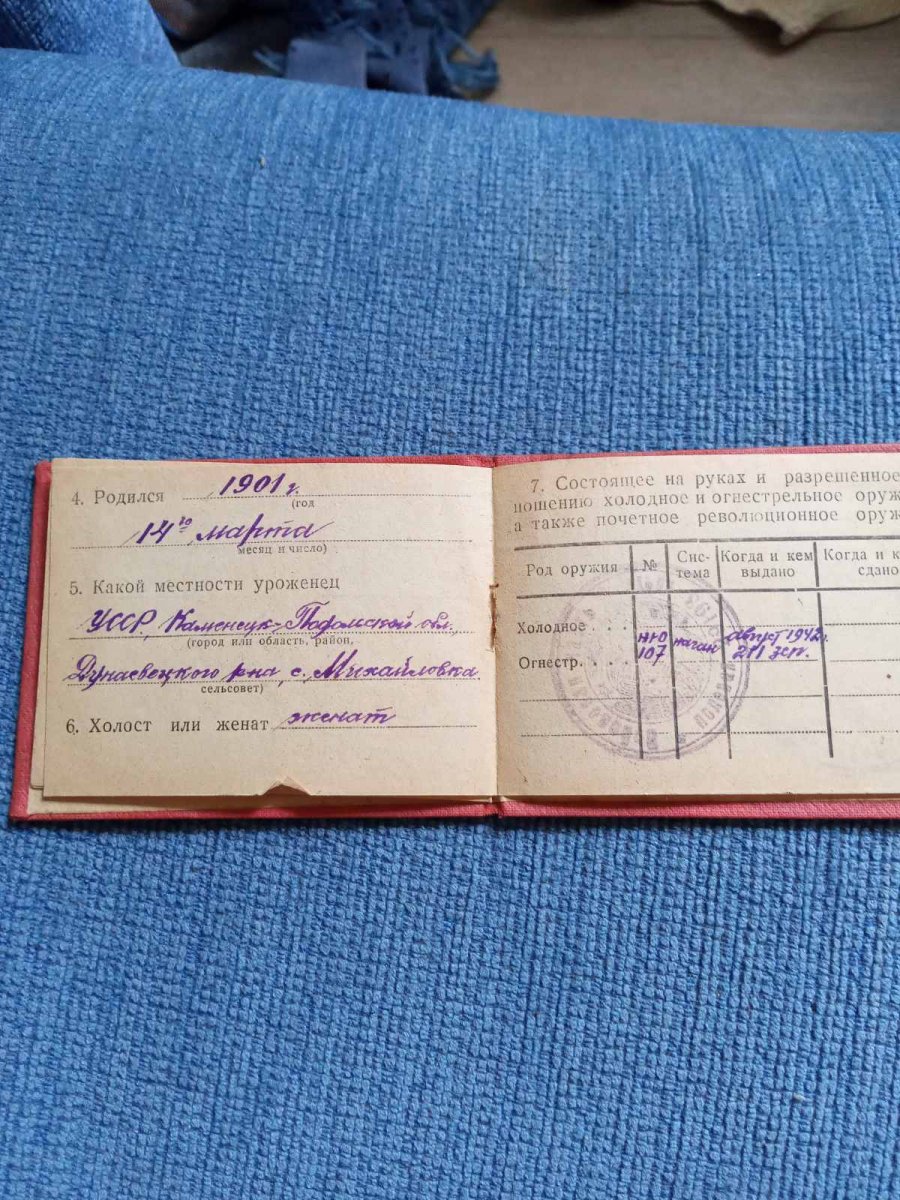 4. Родился 1901 г.
(год
14го марта
месяц и число)
5. Какой местности уроженец
УССР, Каменецк-Подольской обл.,
(город или область, район,
Дунаевецкого р-на, с. Михайловка
сельсовет)
6. Холост или женат женат
7. Состоящее на руках и разрешенное
ношению холодное и огнестрельное оруж
а также почетное революционное оруж
Род оружия № Сис-тема Когда и кем выдано Когда и к сдано
Холодное . . .
Огнестр. . . . НЮ 107 наган август 1942г. 281 зсп.